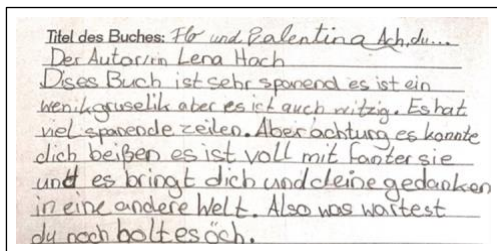 Titel des Buches: Flo und Valentina Ach, du...
Der Autor/in Lena Hach
Dises Buch ist sehr spanend es ist ein
wenik gruselik aber es ist auch witzig. Es hat
viel spanende zeilen. Aber achtung es konnte
dich beißen es ist voll mit fanter sie
und es bringt dich und deine gedanken
in eine andere Welt. Also was wartest
du noch holt es öch.